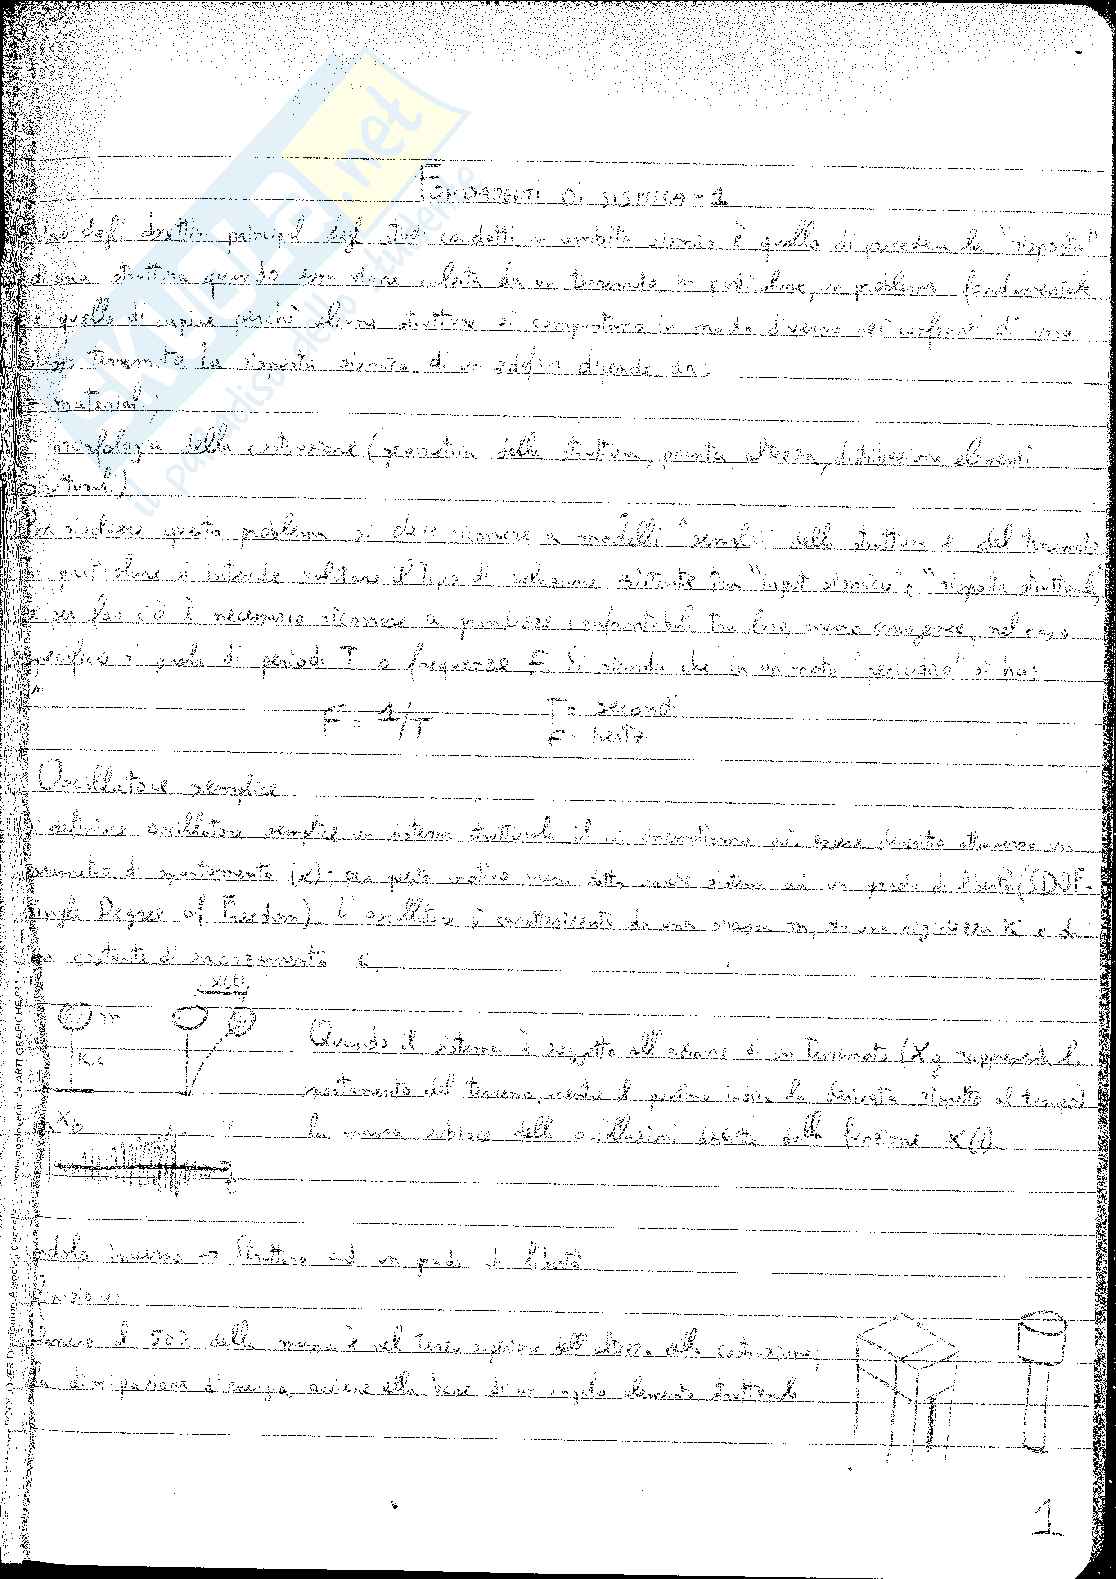 FONDAMENTI DI SISMICA - 1
degli obiettivi principali degli studi condotti in ambito sismico è quello di prevedere la "risposta"
di una struttura quando essa viene colpita da un terremoto in particolare, un problema fondamentale
è quello di capire perchè alcune strutture si comportano in modo diverso nei confronti di uno
terremoto la risposta sismica di un edificio dipende da:
- materiali;
- morfologia della costruzione (geometria della struttura, pianta, altezza, distribuzione elementi
strutturali)
Per risolvere questo problema si deve ricorrere a modelli "semplici" della struttura e del terremoto
in particolare si intende valutare il tipo di relazione esistente tra "input sismico" e "risposta strutturale"
e per far ciò è necessario ricorrere a grandezze confrontabili tra loro, nel caso
specifico si parla di periodo T o frequenze F. Si ricorda che in un moto "periodico" si ha:
F = 1/T T = secondi
F = hertz
Oscillatore semplice
Si definisce oscillatore semplice un sistema strutturale il cui può essere descritto attraverso un
parametro di spostamento (x): per questo motivo viene detto anche sistema ad un grado di libertà (SDOF-
Single Degree of Freedom). L'oscillatore è caratterizzato da una massa m, da una rigidezza K e da
una costante di smorzamento c.
x(t)
m
K, c
Quando il sistema è soggetto all'azione di un terremoto (Xg rappresenta lo
spostamento del terreno, mentre il puntino indica la derivata rispetto al tempo)
la massa subisce delle oscillazioni descritte dalla funzione X(t)
Xg
t
Pendolo inverso → Struttura ad un grado di libertà
Almeno il 50% della massa è nel terzo superiore dell'altezza della costruzione;
La dissipazione d'energia avviene alla base di un singolo elemento strutturale
1
IL paradiso dello studente
SKUOLA.net